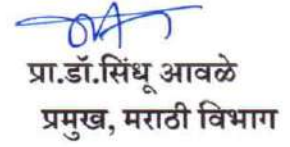 प्रा.डॉ.सिंधू आवळे
प्रमुख, मराठी विभाग